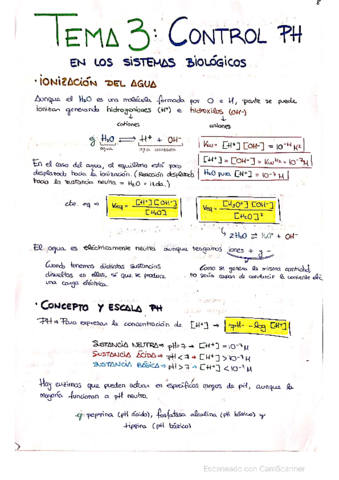 TEMA 3: CONTROL PH
EN LOS SISTEMAS BIOLÓGICOS
· IONIZACIÓN DEL AGUA
Aunque el H₂O es una molécula formada por O e H, parte se puede
ionizar generando hidrogeniones (H⁺) e hidroxilos (OH⁻)
cationes aniones
ej H₂O ⇌ H⁺ + OH⁻
Kw = [H⁺] [OH⁻] = 10⁻¹⁴ M²
[H⁺] = [OH⁻] = Kw^1/2 = 10⁻⁷ M
H₂O pura [H⁺] = 10⁻⁷ M
En el caso del agua, el equilibrio está poco
desplazado hacia la ionización. (Reacción desplazada
hacia la sustancia neutra = H₂O = izda.)
cte. eq → Keq = [H⁺] [OH⁻] / [H₂O]
Keq = [H₃O⁺] [OH⁻] / [H₂O]²
2H₂O ⇌ H₃O⁺ + OH⁻
El agua es eléctricamente neutra aunque tengamos iones + y -
Cuando tenemos distintas sustancias
disueltas en ellas, sí que se produce
una carga eléctrica.
Como se genera la misma cantidad
no sería capaz de conducir la corriente eléc.
· CONCEPTO Y ESCALA PH
PH → Para expresar la concentración de [H⁺] → pH = - log [H⁺]
SUSTANCIA NEUTRA → pH = 7 → [H⁺] = 10⁻⁷ M
SUSTANCIA ÁCIDA → pH < 7 → [H⁺] > 10⁻⁷ M
SUSTANCIA BÁSICA → pH > 7 → [H⁺] < 10⁻⁷ M
Hay enzimas que pueden actuar en específicos rangos de pH, aunque la
mayoría funcionan a pH neutro.
ej pepsina (pH ácido), fosfatasa alcalina (pH básico) y
tripsina (pH básico)
Escaneado con CamScanner